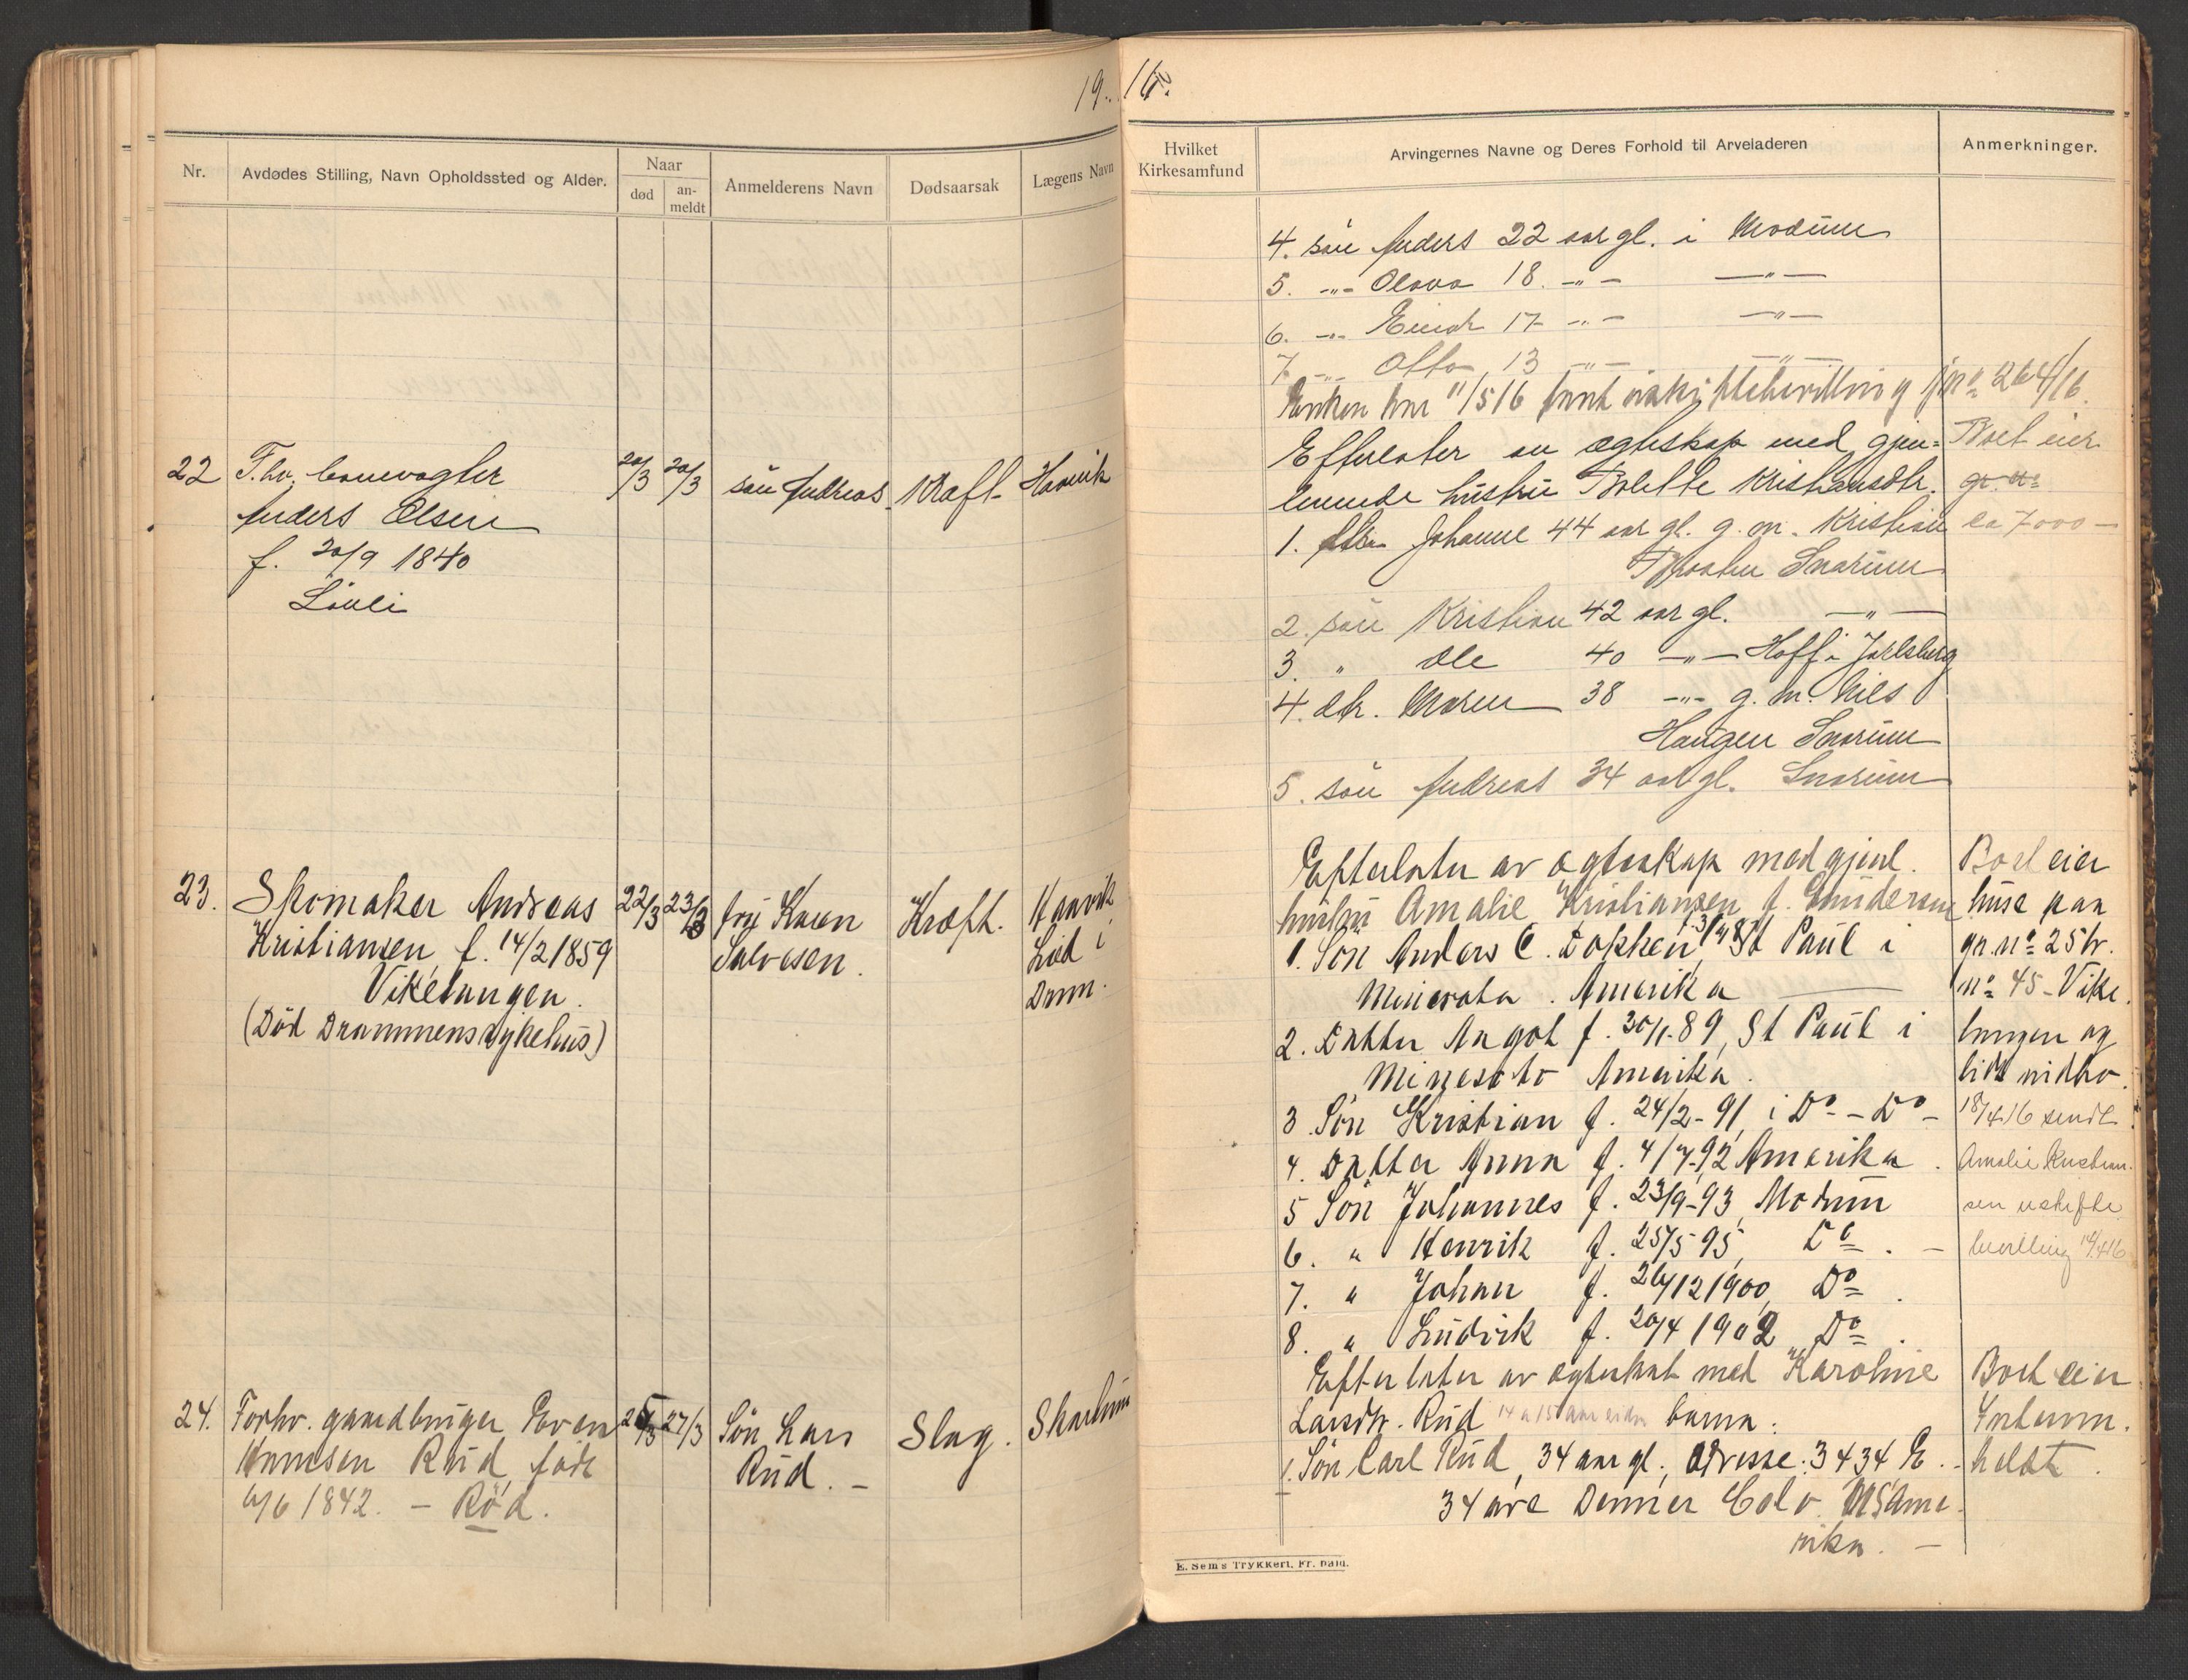 19..
16.
Nr.
Avdødes Stilling, Navn Opholdssted og Alder.
Naar
død
an-
meldt
Anmelderens Navn
Dødsaarsak
Lægens Navn
Hvilket
Kirkesamfund
Arvingernes Navne og Deres Forhold til Arveladeren
Anmerkninger.
4. søn Anders 22 aar gl. i Modum
5. -"- Olava 18. -"- -"-
6. -"- Einar 17 -"- -"-
7. -"- Otto 13 -"- -"-
Enken har 11/5 16 faat uskiftebevilling jno 264/16.
22
F.hv. banevogter
Anders Olsen
f. 20/9 1840
Lauli
20/3
20/3
søn Andreas
Kræft
Haavik
Efterlater av ægteskap med gjen-
levende hustru Bolette Kristiansdtr.
1. dtr. Johanne 44 aar gl. g. m. Kristian
Braaten Snarum
2. søn Kristian 42 aar gl. -"-
3. " Ole 40 -"- Hoff i Jarlsberg
4. dtr. Maren 38 -"- g. m. Nils
Haugen Snarum
5. søn Andreas 34 aar gl. Snarum
Boet eier
ca 7000 -
23.
Skomaker Andreas
Kristiansen, f. 14/2 1859
Viketangen.
(Død Drammens sykehus)
22/3
23/3
fru Karen
Salvesen.
Kræft.
Haavik
Lied i
Drm.
Efterlater av ægteskap med gjenl.
hustru Amalie Kristiansen f. Gundersen
1. Søn Anders C. Dokken, St Paul i
Minesota. Amerika
2. Datter Aagot f. 30/1-89, St Paul i
Minesoto Amerika.
3. Søn Kristian f. 24/2-91, i Do - Do -
4. Datter Anna f. 4/7-92 Amerika.
5 Søn Johannes f. 23/9-93, Modum
6. " Henrik f. 25/5 95, Do. -
7. " Johan f. 26/12 1900, Do.
8. " Ludvik f. 20/4 1902 Do.
Boet eier
huse paa
gr. no 25 br.
no 45 - Vike
tangen og
litt indbo.
18/4 16 sendt
Amalie Kristian-
sen uskifte
bevilling 14/4 16
24.
Forhv. gaardbruger Even
Hansen Rud, født
6/6 1842. - Rød.
27/3
Søn Lars
Rud. -
Slag.
Skarlum
Efterlater av ægteskab med Karoline
Larsdtr. Rud barn:
1. Søn Carl Rud, 34 aar gl., Adresse: 3434 E. -
34 ave Denver Colo. NS Ame-
rika. -
Boet eier
Indvom.
heldt.
E. Sems Trykkeri, Fr.hald.